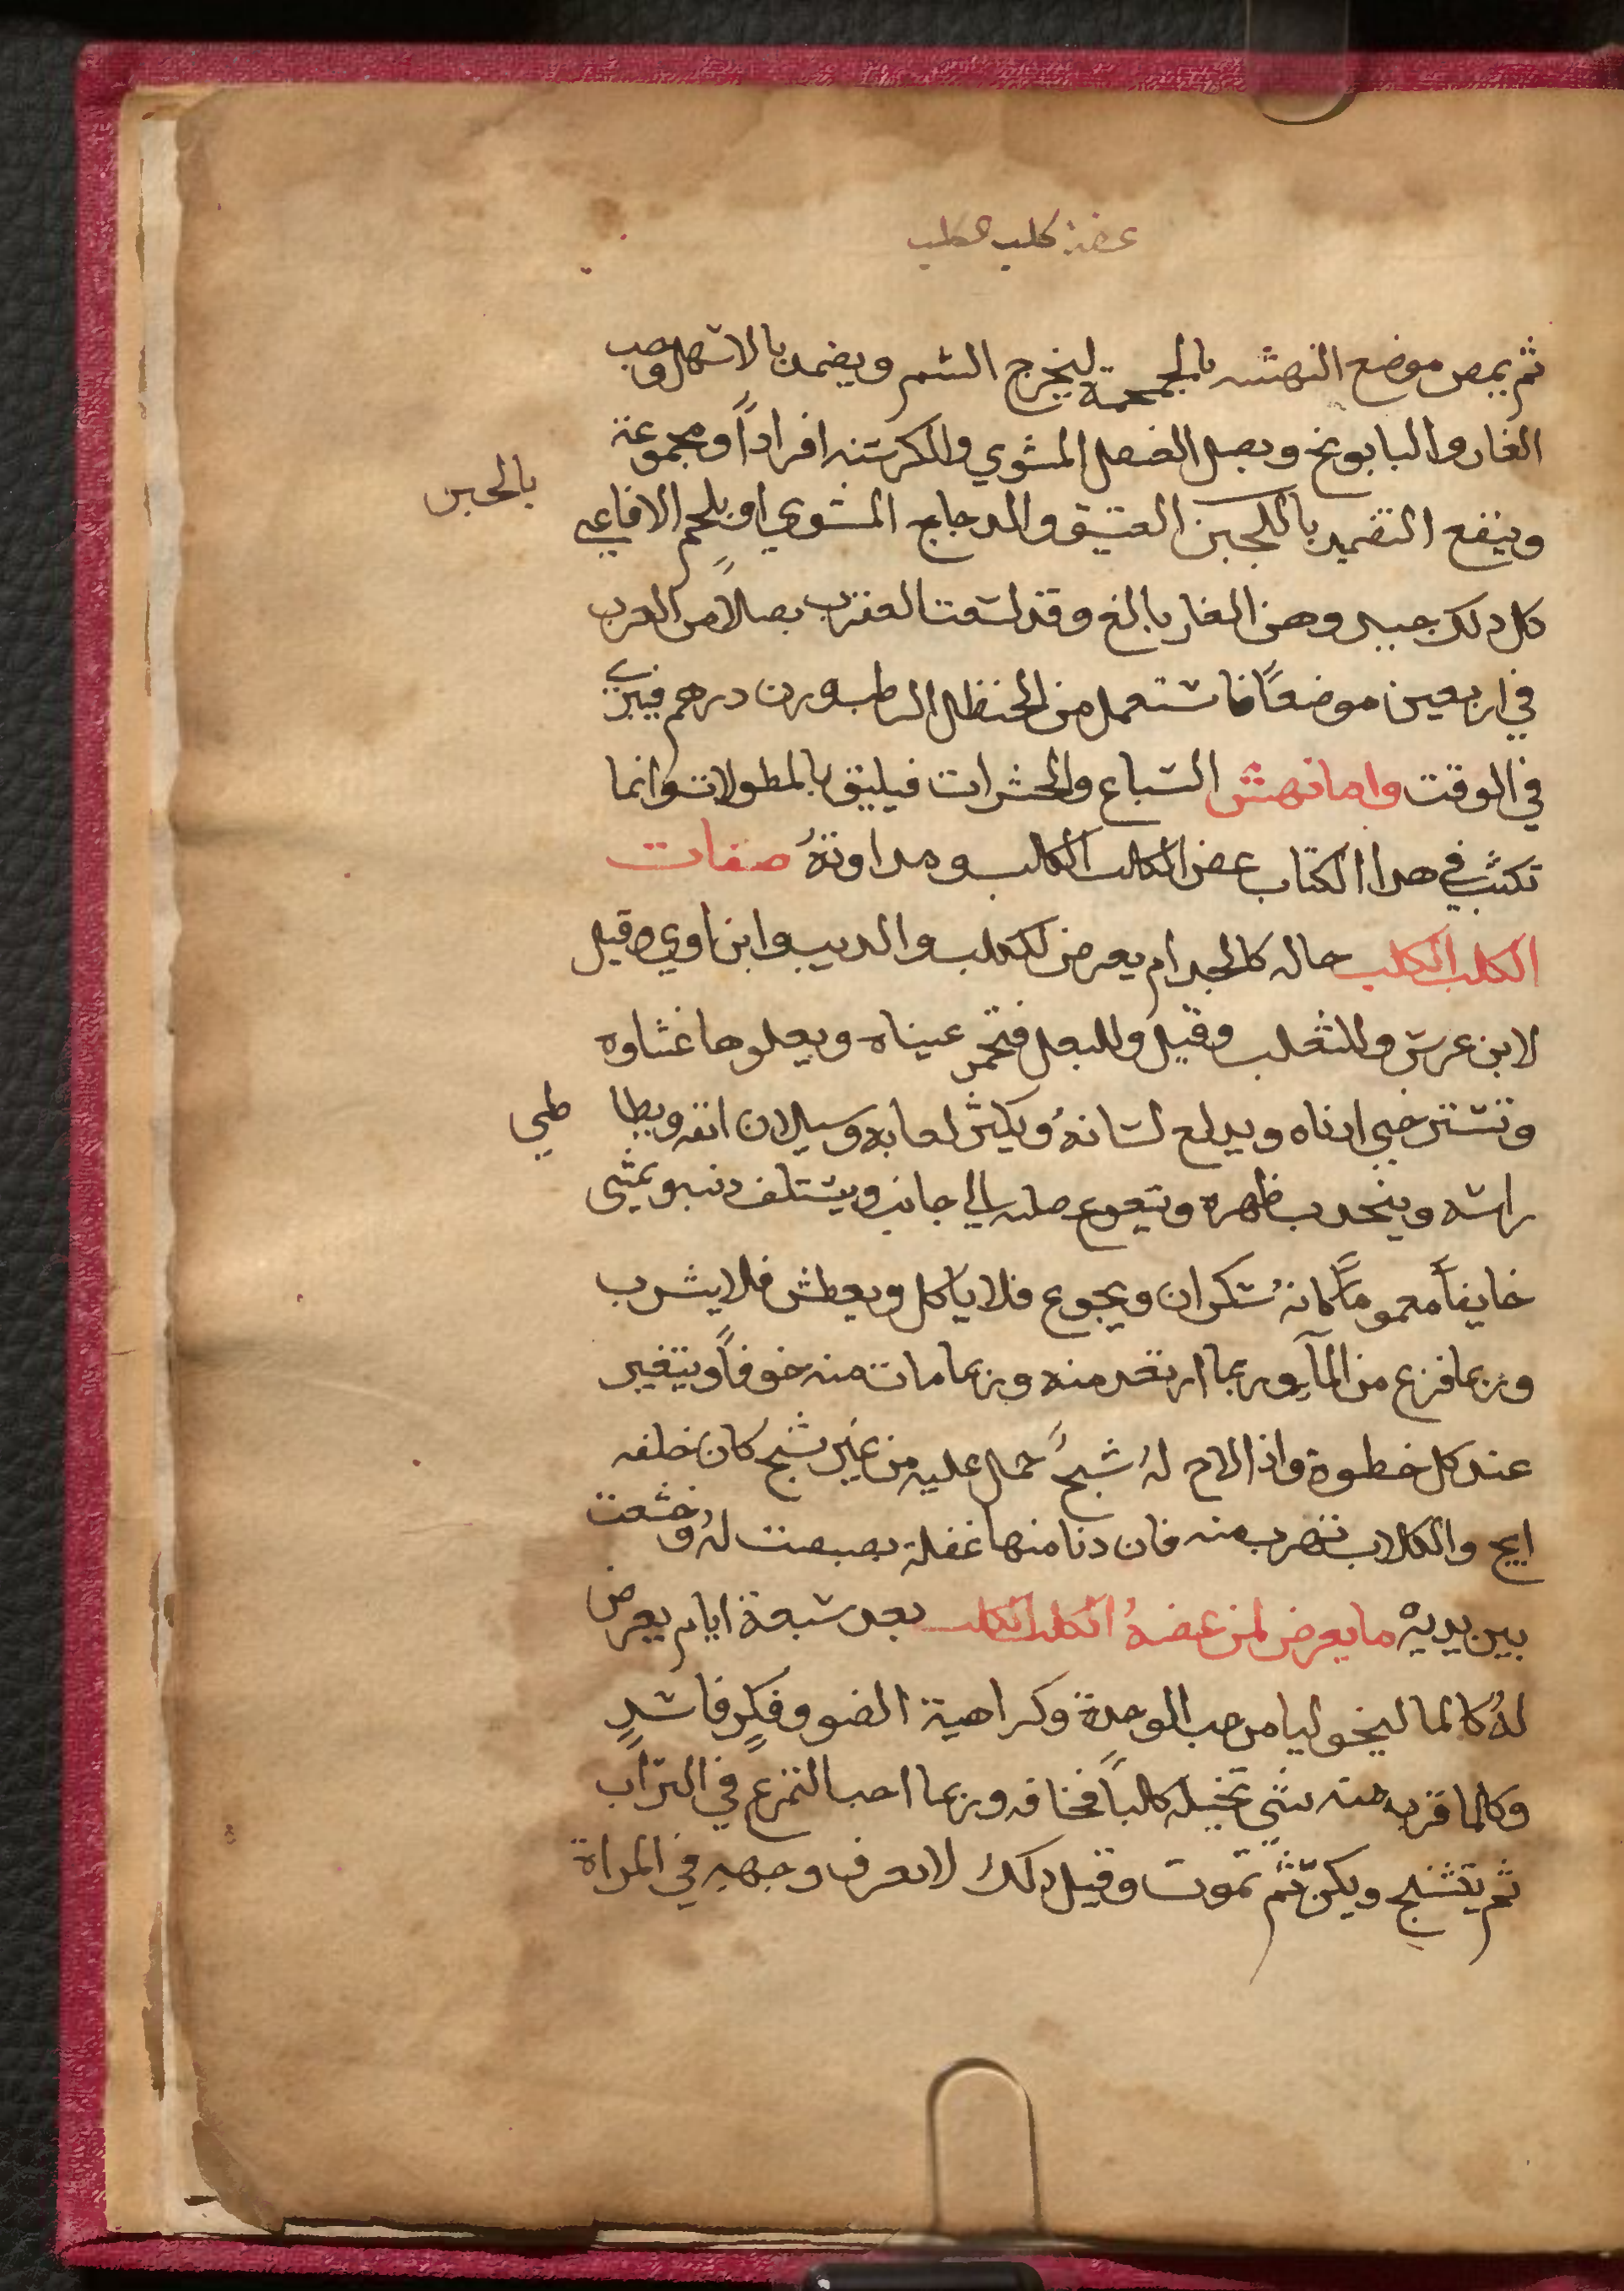 عضة كلب الكلب
ثم يمص موضع النهشه بالمحجمة ليخرج السم ويضمد بالاسهل وحب
الغار والبابونج وبصل العنصل المشوي والكرسنه افراداً ومجموعة
وينفع التضميد باللجبن العتيق والدجاج المشوي او بلحم الافاعي
بالجبن
كل دلك جيد وحب الغار بالغ وقد لسعت العقرب بصلاً من العرب
في اربعين موضعاً فاستعمل من الحنظل الرطب وزن درهم فبرئ
في الوقت واما نهش السباع والحشرات فيليق بالمطولات وانما
نكتب في هدا الكتاب عض الكلب الكلب ومداوتهُ صفات
الكلب الكلب حاله كالجدام يعرض للكلب والديب وابن اوي وقيل
لابن عرس وللثعلب وقيل وللبغل فتحمر عيناه ويعلوها غشاوه
وتسترخي ادناه ويدلع لسانهُ ويكثر لعابه وسيلان انفه ويطا
طي
راسه وينحدب ظهره ويتعوج صلبه الي جانب ويستلف دنبه ويمشي
خايفاً مغموماً كانهُ سكران ويجوع فلا ياكل ويعطش فلا يشرب
وربما فزع من المآ وربما ارتعد منه وربما مات منه خوفاً ويتغير
عند كل خطوة واذا لاح لهُ شبحٌ حمل عليه من غير شبح كان خلفه
ايج والكلاب تهرب منه فان دنا منها غفلة بصبصت لهُ وخشعت
بين يديه ما يعرض لمن عضهُ الكلب الكلب بعد سبعة ايام يعرض
لهُ كالماليخوليا من حب الوحدة وكراهية الضو وفكرٍ فاسدٍ
وكالما قرب منه شي تخيله كالباً فخافه وربما احب التمزع في التراب
ثم يتشنج ويكنّ ثم تموت وقيل دلك لا يعرف وجهه في المراة